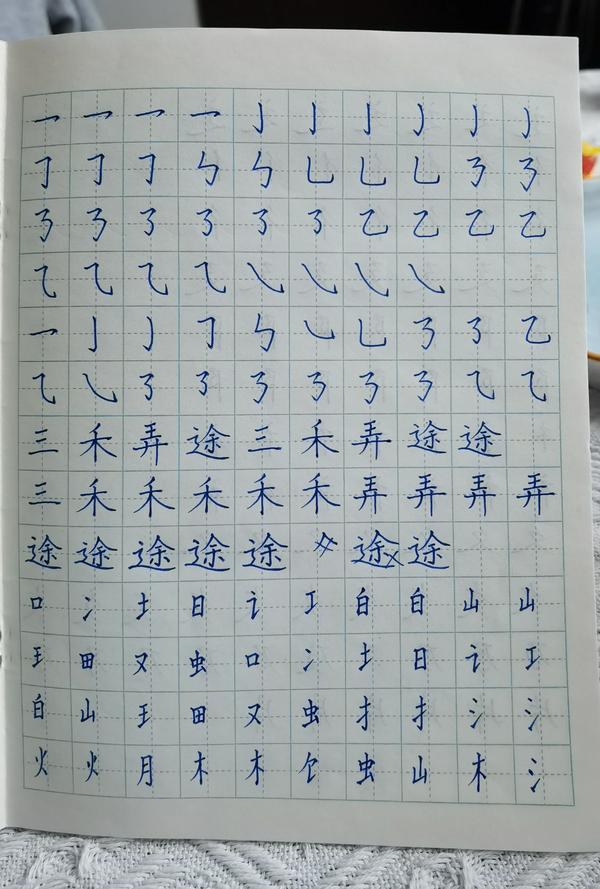 ㇐ ㇐ ㇐ ㇐ 亅 亅 亅 亅 亅 亅
㇆ ㇆ ㇆ ㇉ ㇉ ㇄ ㇄ ㇄ ㇌ ㇌
㇌ ㇌ ㇌ ㇌ ㇌ ㇌ 乙 乙 乙 乙
㇈ ㇈ ㇈ ㇈ ㇂ ㇂ ㇂ ㇂
㇐ 亅 亅 ㇆ ㇉ ㇃ ㇄ ㇌ ㇌ 乙
㇈ ㇂ ㇌ ㇌ ㇌ ㇌ ㇌ ㇌ ㇈ ㇈
三 禾 弄 途 三 禾 弄 途 途
三 禾 禾 禾 禾 禾 弄 弄 弄 弄
途 途 途 途 途 途 途
口 冫 土 日 讠 工 白 白 山 山
王 田 又 虫 口 冫 土 日 讠 工
白 山 王 田 又 虫 扌 扌 氵 氵
火 火 月 木 木 饣 虫 山 木 氵